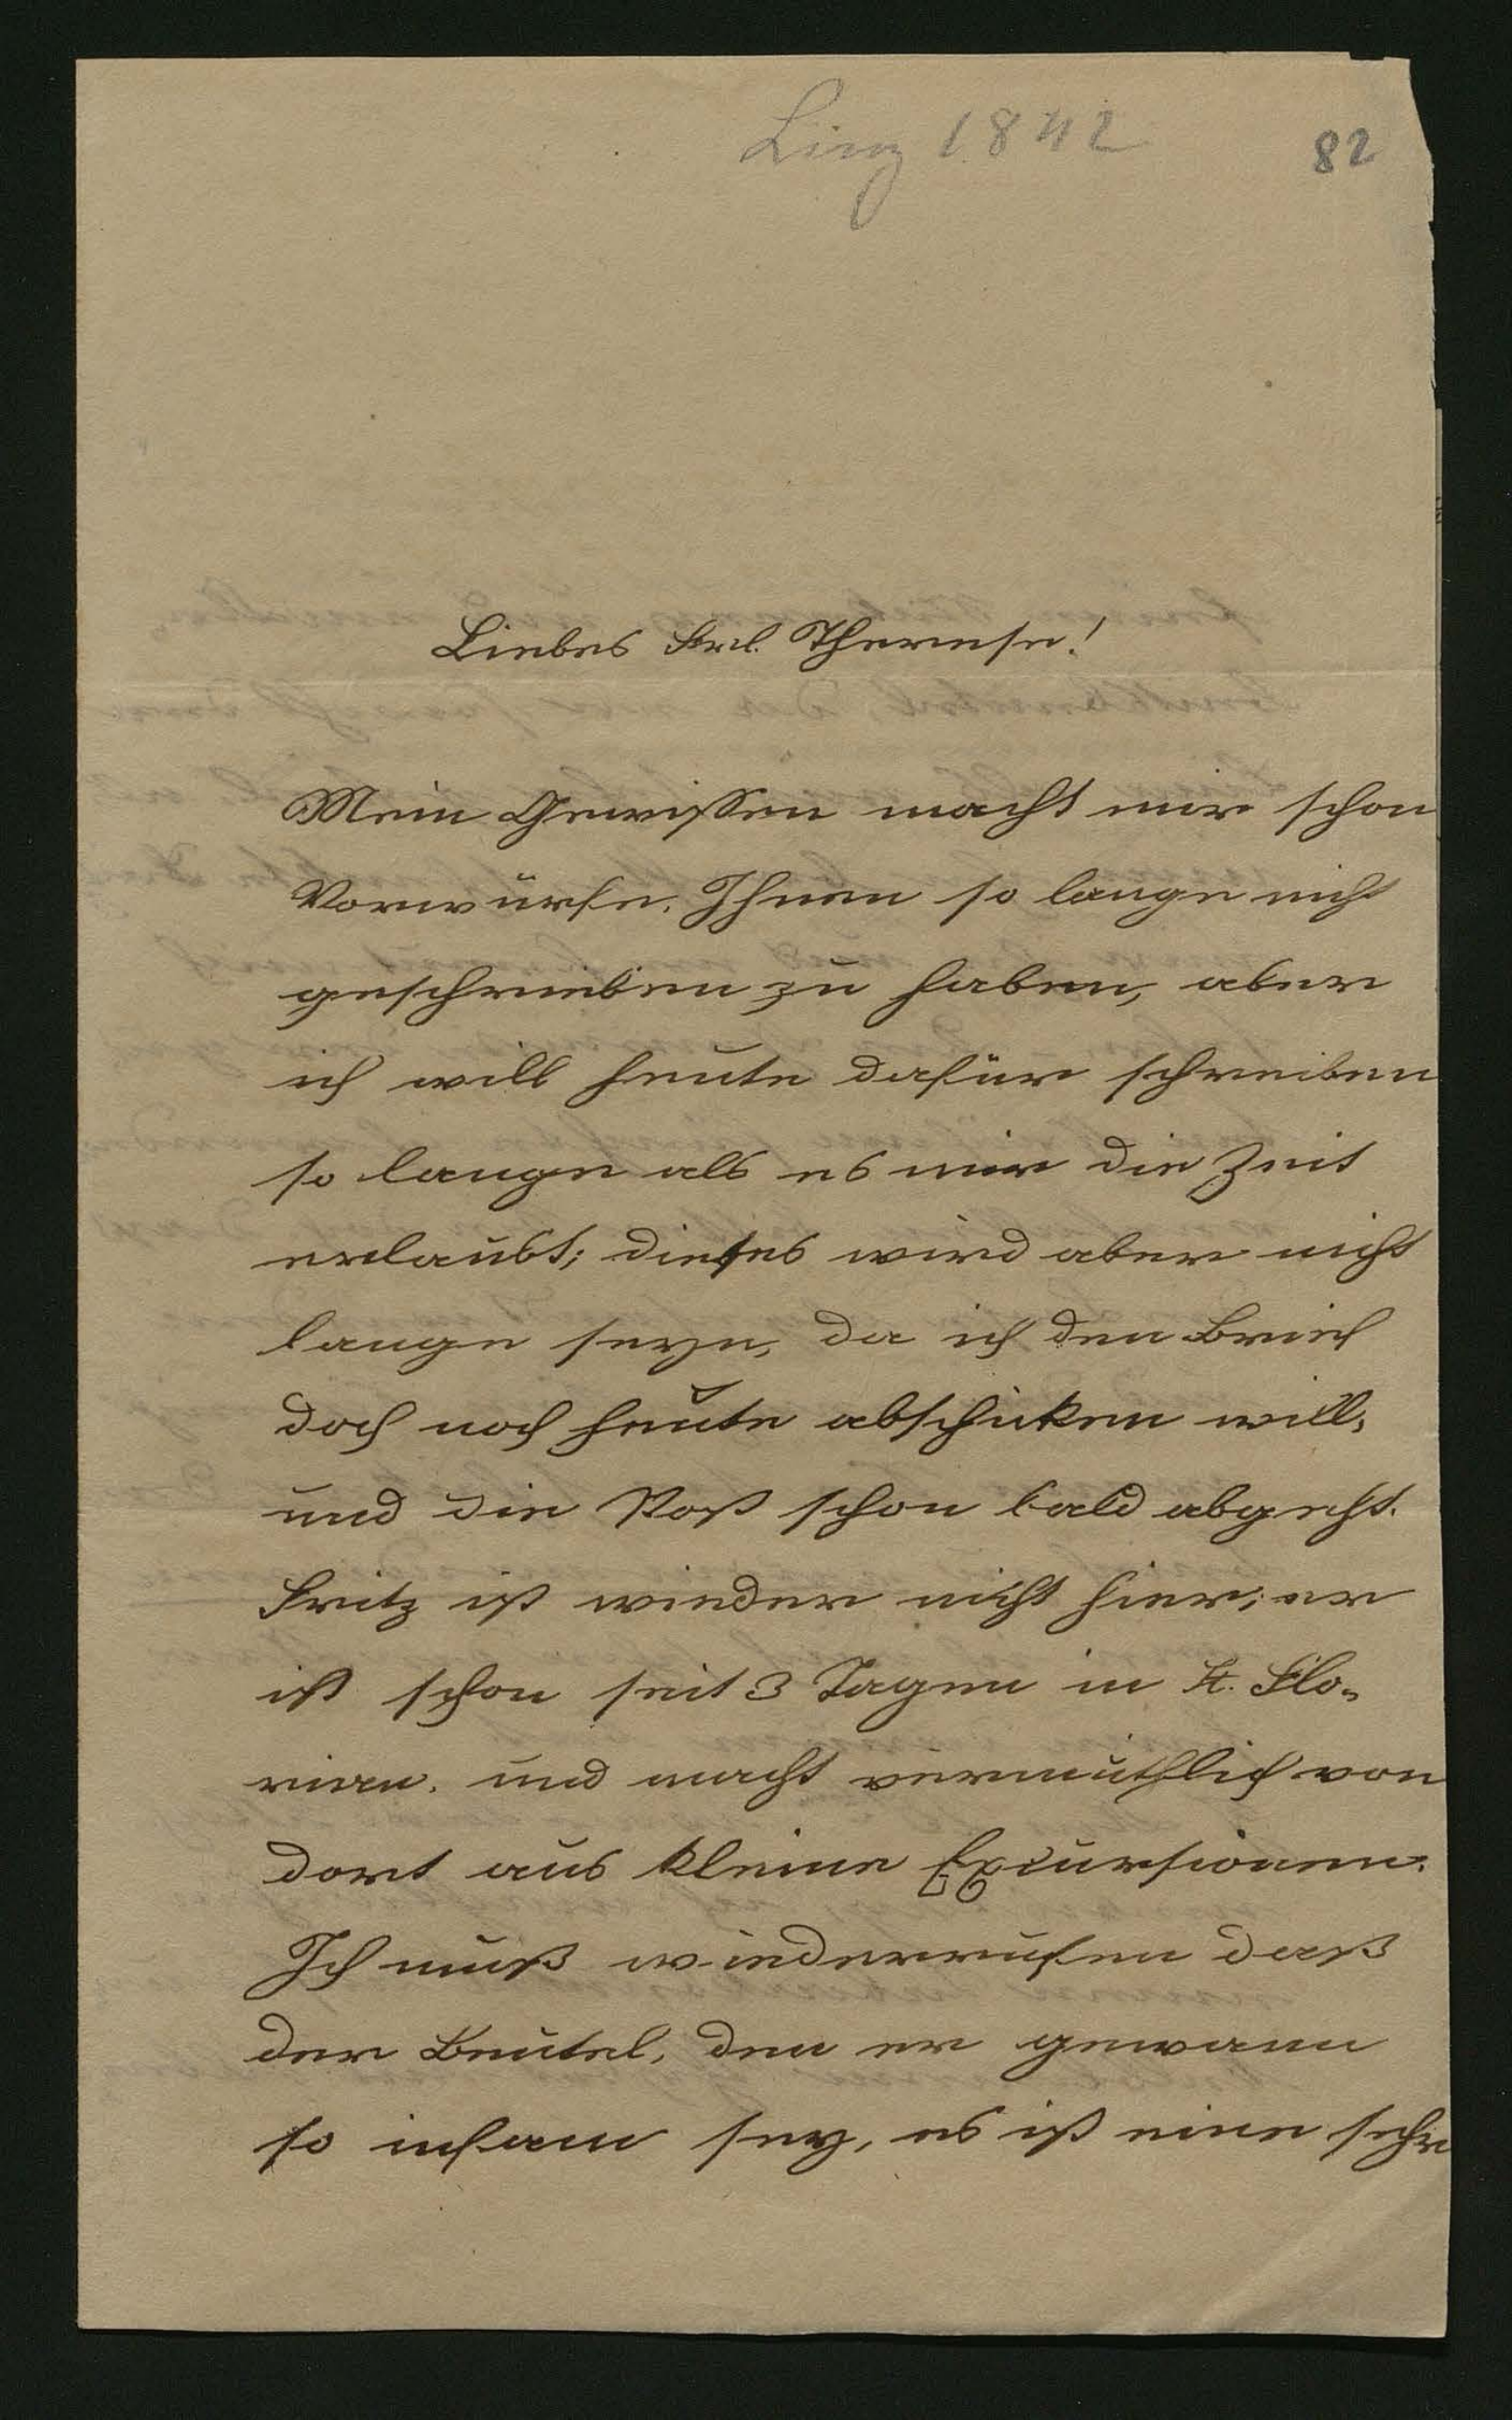 Linz 1842
82
Liebes Frl. Therese!
Mein Gewissen macht mir schon
Vorwürfe, Ihnen so lange nicht
geschrieben zu haben, aber
ich will heute dafür schreiben
so lange als es mir die Zeit
erlaubt; dieses wird aber nicht
lange seyn, da ich den Brief
doch noch heute abschicken will,
und die Post schon bald abgeht.
Fritz ist wieder nicht hier; er
ist schon seit 3 Tagen in St. Flo-
rian, und macht vermuthlich von
dort aus kleine Excursionen.
Ich muß wiederrufen daß
der Beutel, den er gewann
so infam sey, es ist eine sehr